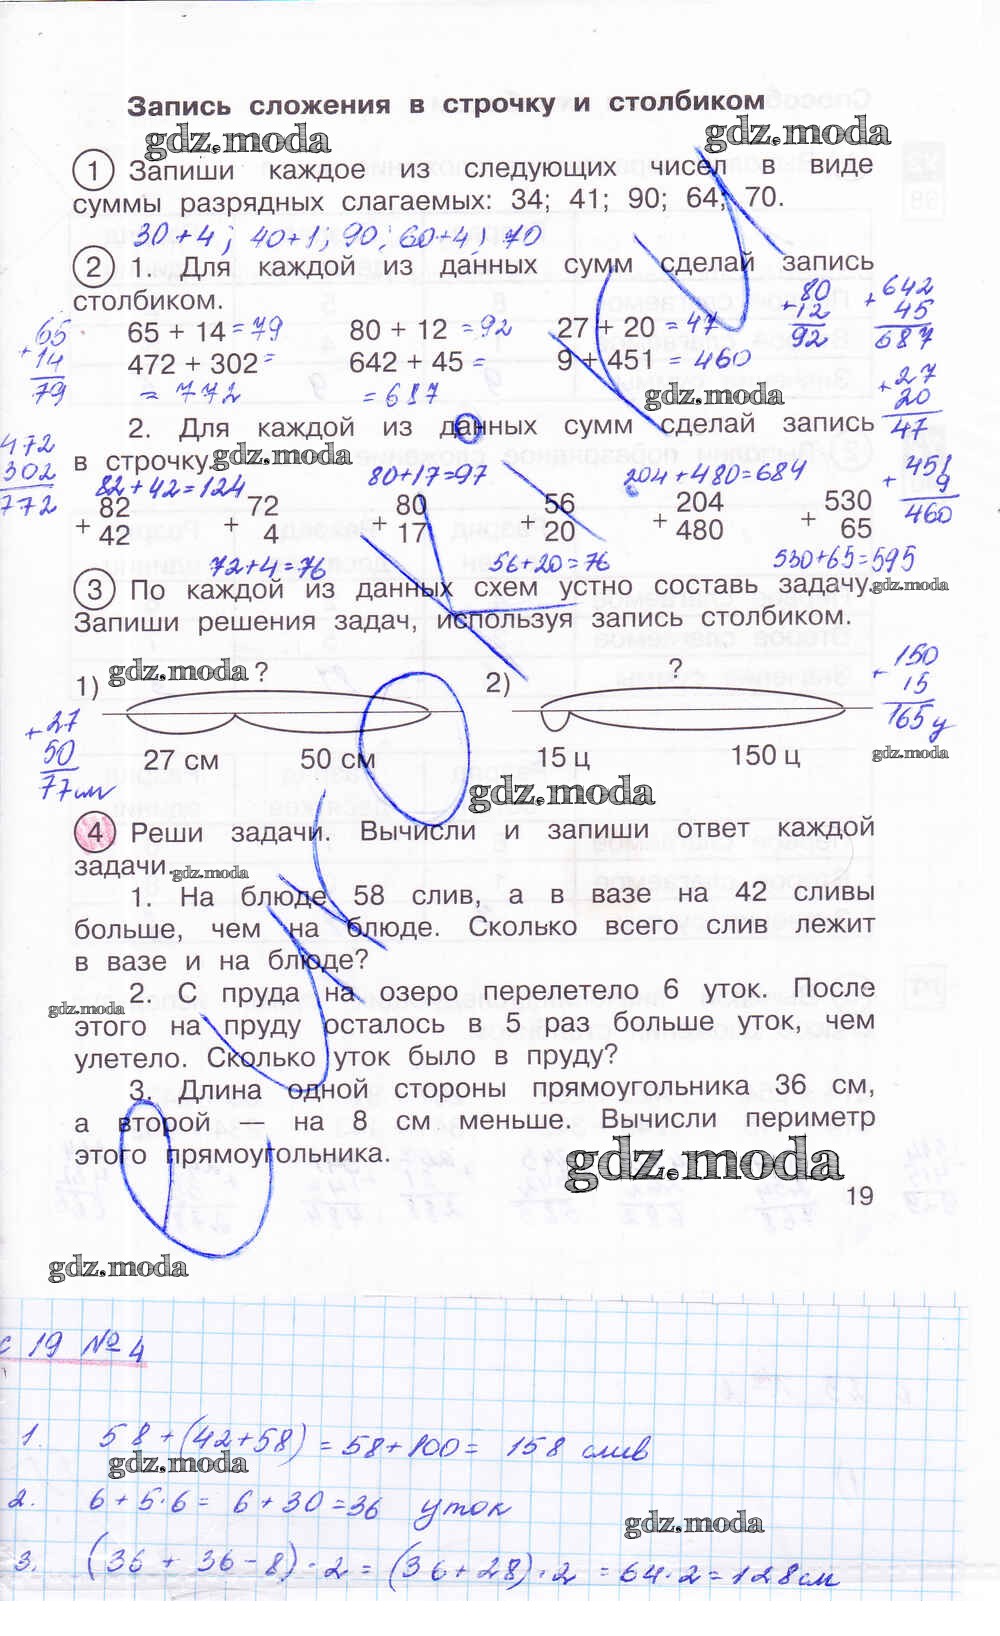 Запись сложения в строчку и столбиком
gdz.moda
gdz.moda
1 Запиши каждое из следующих чисел в виде
суммы разрядных слагаемых: 34; 41; 90; 64; 70.
30+4; 40+1; 90; 60+4; 70
2 1. Для каждой из данных сумм сделай запись
столбиком.
65 + 14 = 79 80 + 12 = 92 27 + 20 = 47
472 + 302 = 642 + 45 = 9 + 451 = 460
= 772 = 687
65
+ 14
79
80
+ 12
92
+ 642
45
687
gdz.moda
+ 27
20
47
2. Для каждой из данных сумм сделай запись
в строчку.
gdz.moda
472
302
772
+ 451
9
460
82+42=124 80+17=97 204+480=684
82 72 80 56 204 530
+ + + + + +
42 4 17 20 480 65
72+4=76 56+20=76 530+65=595
3 По каждой из данных схем устно составь задачу.
gdz.moda
Запиши решения задач, используя запись столбиком.
1) ? 2) ?
gdz.moda
27 см 50 см 15 ц 150 ц
+ 27
50
77 см
+ 150
15
165 ц
gdz.moda
gdz.moda
4 Реши задачи. Вычисли и запиши ответ каждой
задачи.
gdz.moda
1. На блюде 58 слив, а в вазе на 42 сливы
больше, чем на блюде. Сколько всего слив лежит
в вазе и на блюде?
2. С пруда на озеро перелетело 6 уток. После
gdz.moda
этого на пруду осталось в 5 раз больше уток, чем
улетело. Сколько уток было в пруду?
3. Длина одной стороны прямоугольника 36 см,
а второй — на 8 см меньше. Вычисли периметр
этого прямоугольника.
gdz.moda
19
gdz.moda
с 19 № 4
1. 58+(42+58)=58+100= 158 слив
gdz.moda
2. 6+5·6= 6+30=36 уток
gdz.moda
3. (36 + 36-8)·2 = (36+28)·2 = 64·2=128 см